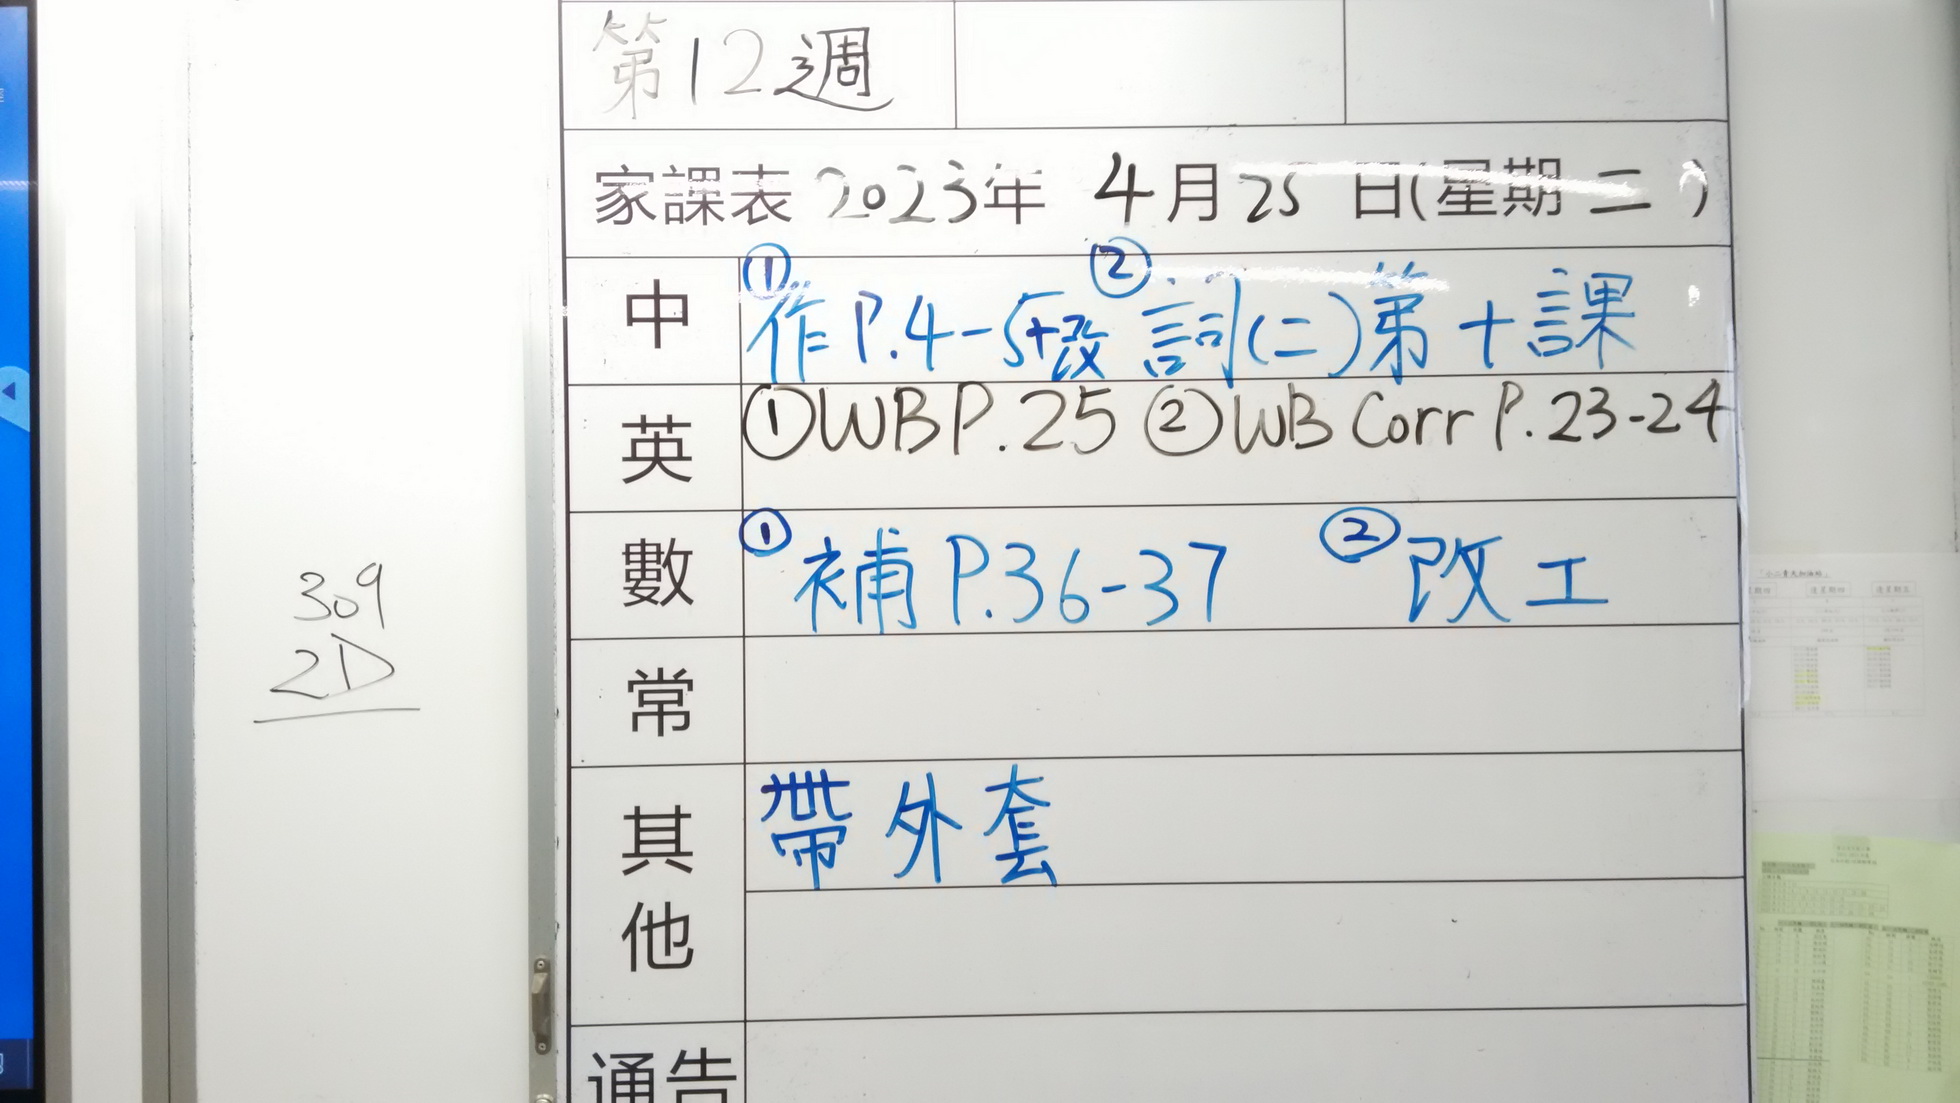 第12週
家課表 2023年 4月25日(星期二)
中 ①作P.4-5+改 ②詞(二)第十課
英 ①WB P.25 ②WB Corr P.23-24
數 ①補P.36-37 ②改工
309
2D
常
其他 帶外套
通告